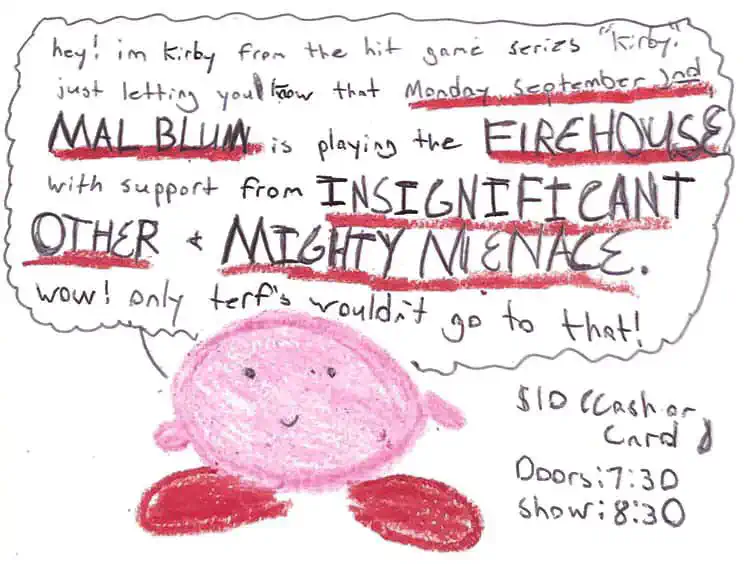 hey! im kirby from the hit game series "kirby."
just letting you know that Monday, september 2nd,
MAL BLUM is playing the FIREHOUSE
with support from INSIGNIFICANT
OTHER & MIGHTY MENACE.
wow! only terf's wouldn't go to that!
$10 (Cash or
Card)
Doors: 7:30
Show: 8:30